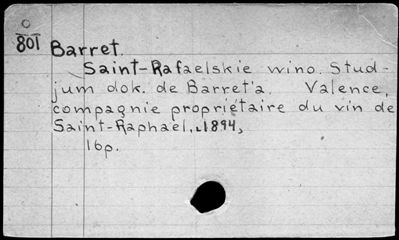 801
Barret.
Saint-Rafaelskie wino. Stud-
jum dok. de Barret'a. Valence,
compagnie propriétaire du vin de
Saint-Raphael, 1894,
16p.